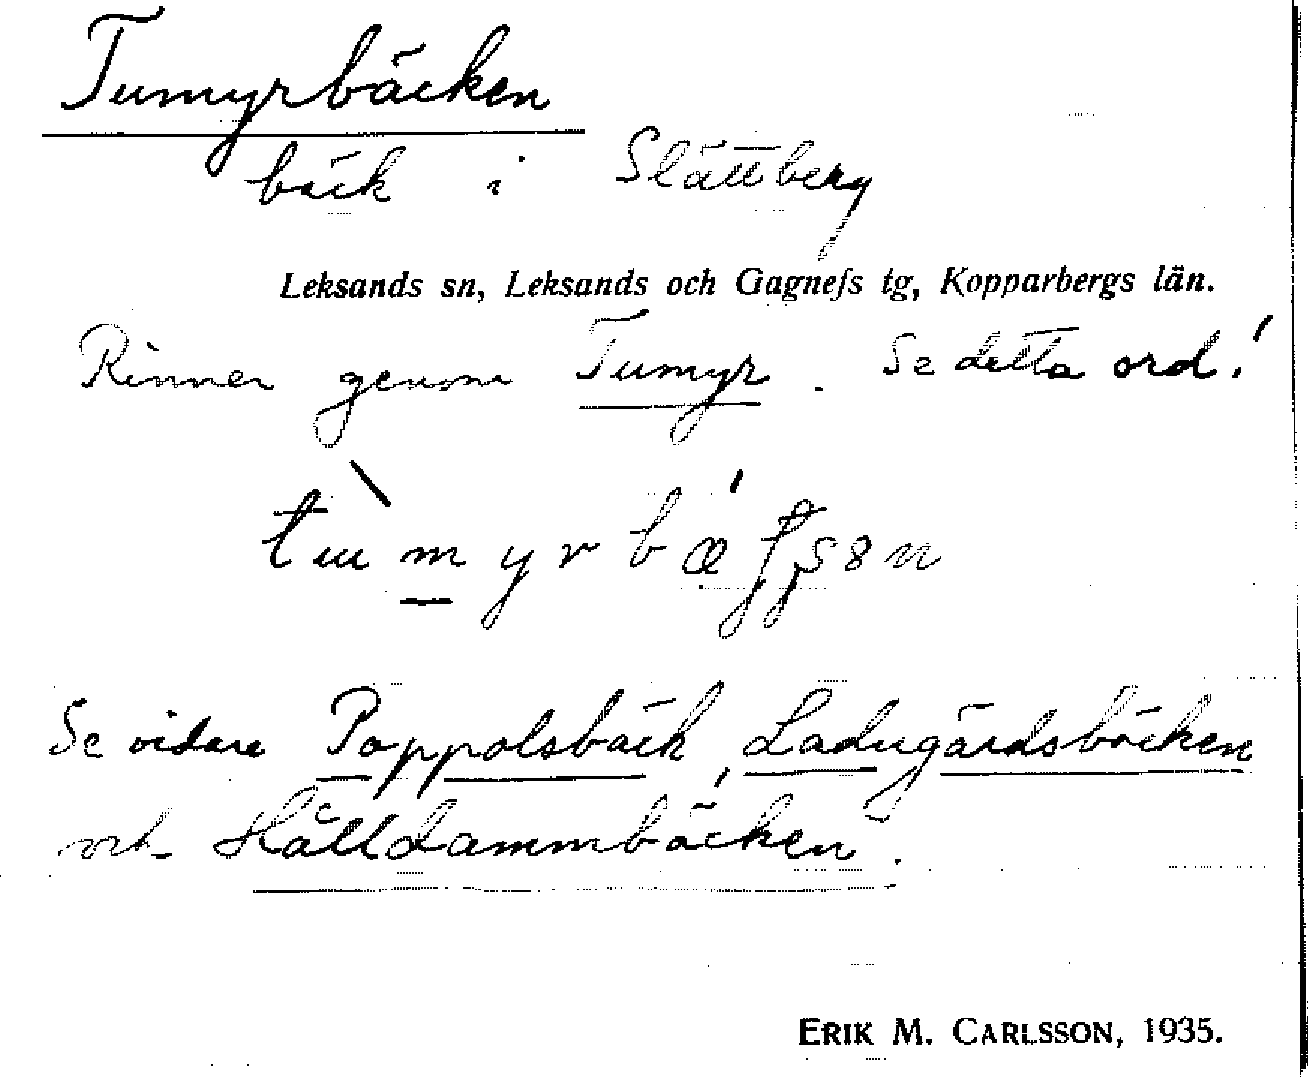 Tumyrbäcken
bäck i Slättberg
Leksands sn, Leksands och Gagnefs tg, Kopparbergs län.
Rinner genom Tumyr. Se detta ord!
Se vidare Poppolsbäck, Ladugårdsbäcken
och Hålldammbäcken.
ERIK M. CARLSSON, 1935.